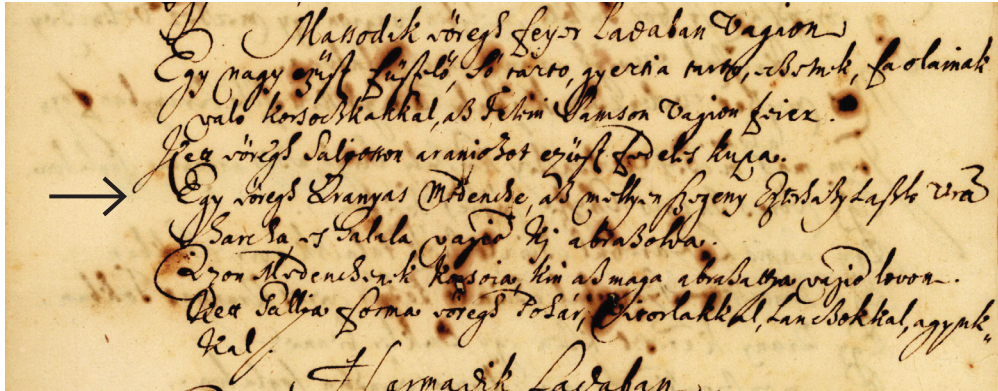 Masodik vöregh feyer Ladaban Vagion
Egy nagy ezüst füstelő, só tarto, gyertia tarto, eczetnek, faolainak
való korsoczkakkal, az Tetein Samson Vagion feier.
Hett vöregh Saliosson araniozot ezüst fedeles kupa.
Egy vöregh Aranyas Medencze, az mellyen szegeny Eztterhazy Laszlo Vra
harcza es halala vagio ki abrazolva.
Azon Medenczenek korsoia, kin az maga abrazattya vagio lovon.
Kett Gallya forma vöregh Pohár, Vitorlakkal, Lanczokkal, agyuk-
kal.
Harmadik Ladaban